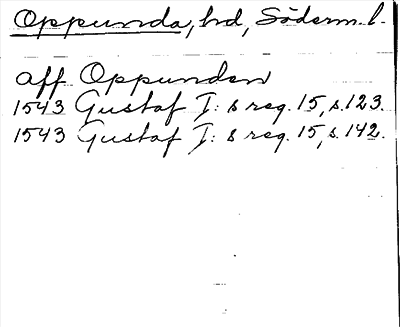 Oppunda, hd, Söderm. l.
aff Oppunden
1543 Gustaf I: s reg. 15, s. 123.
1543 Gustaf I: s reg. 15, s. 142.